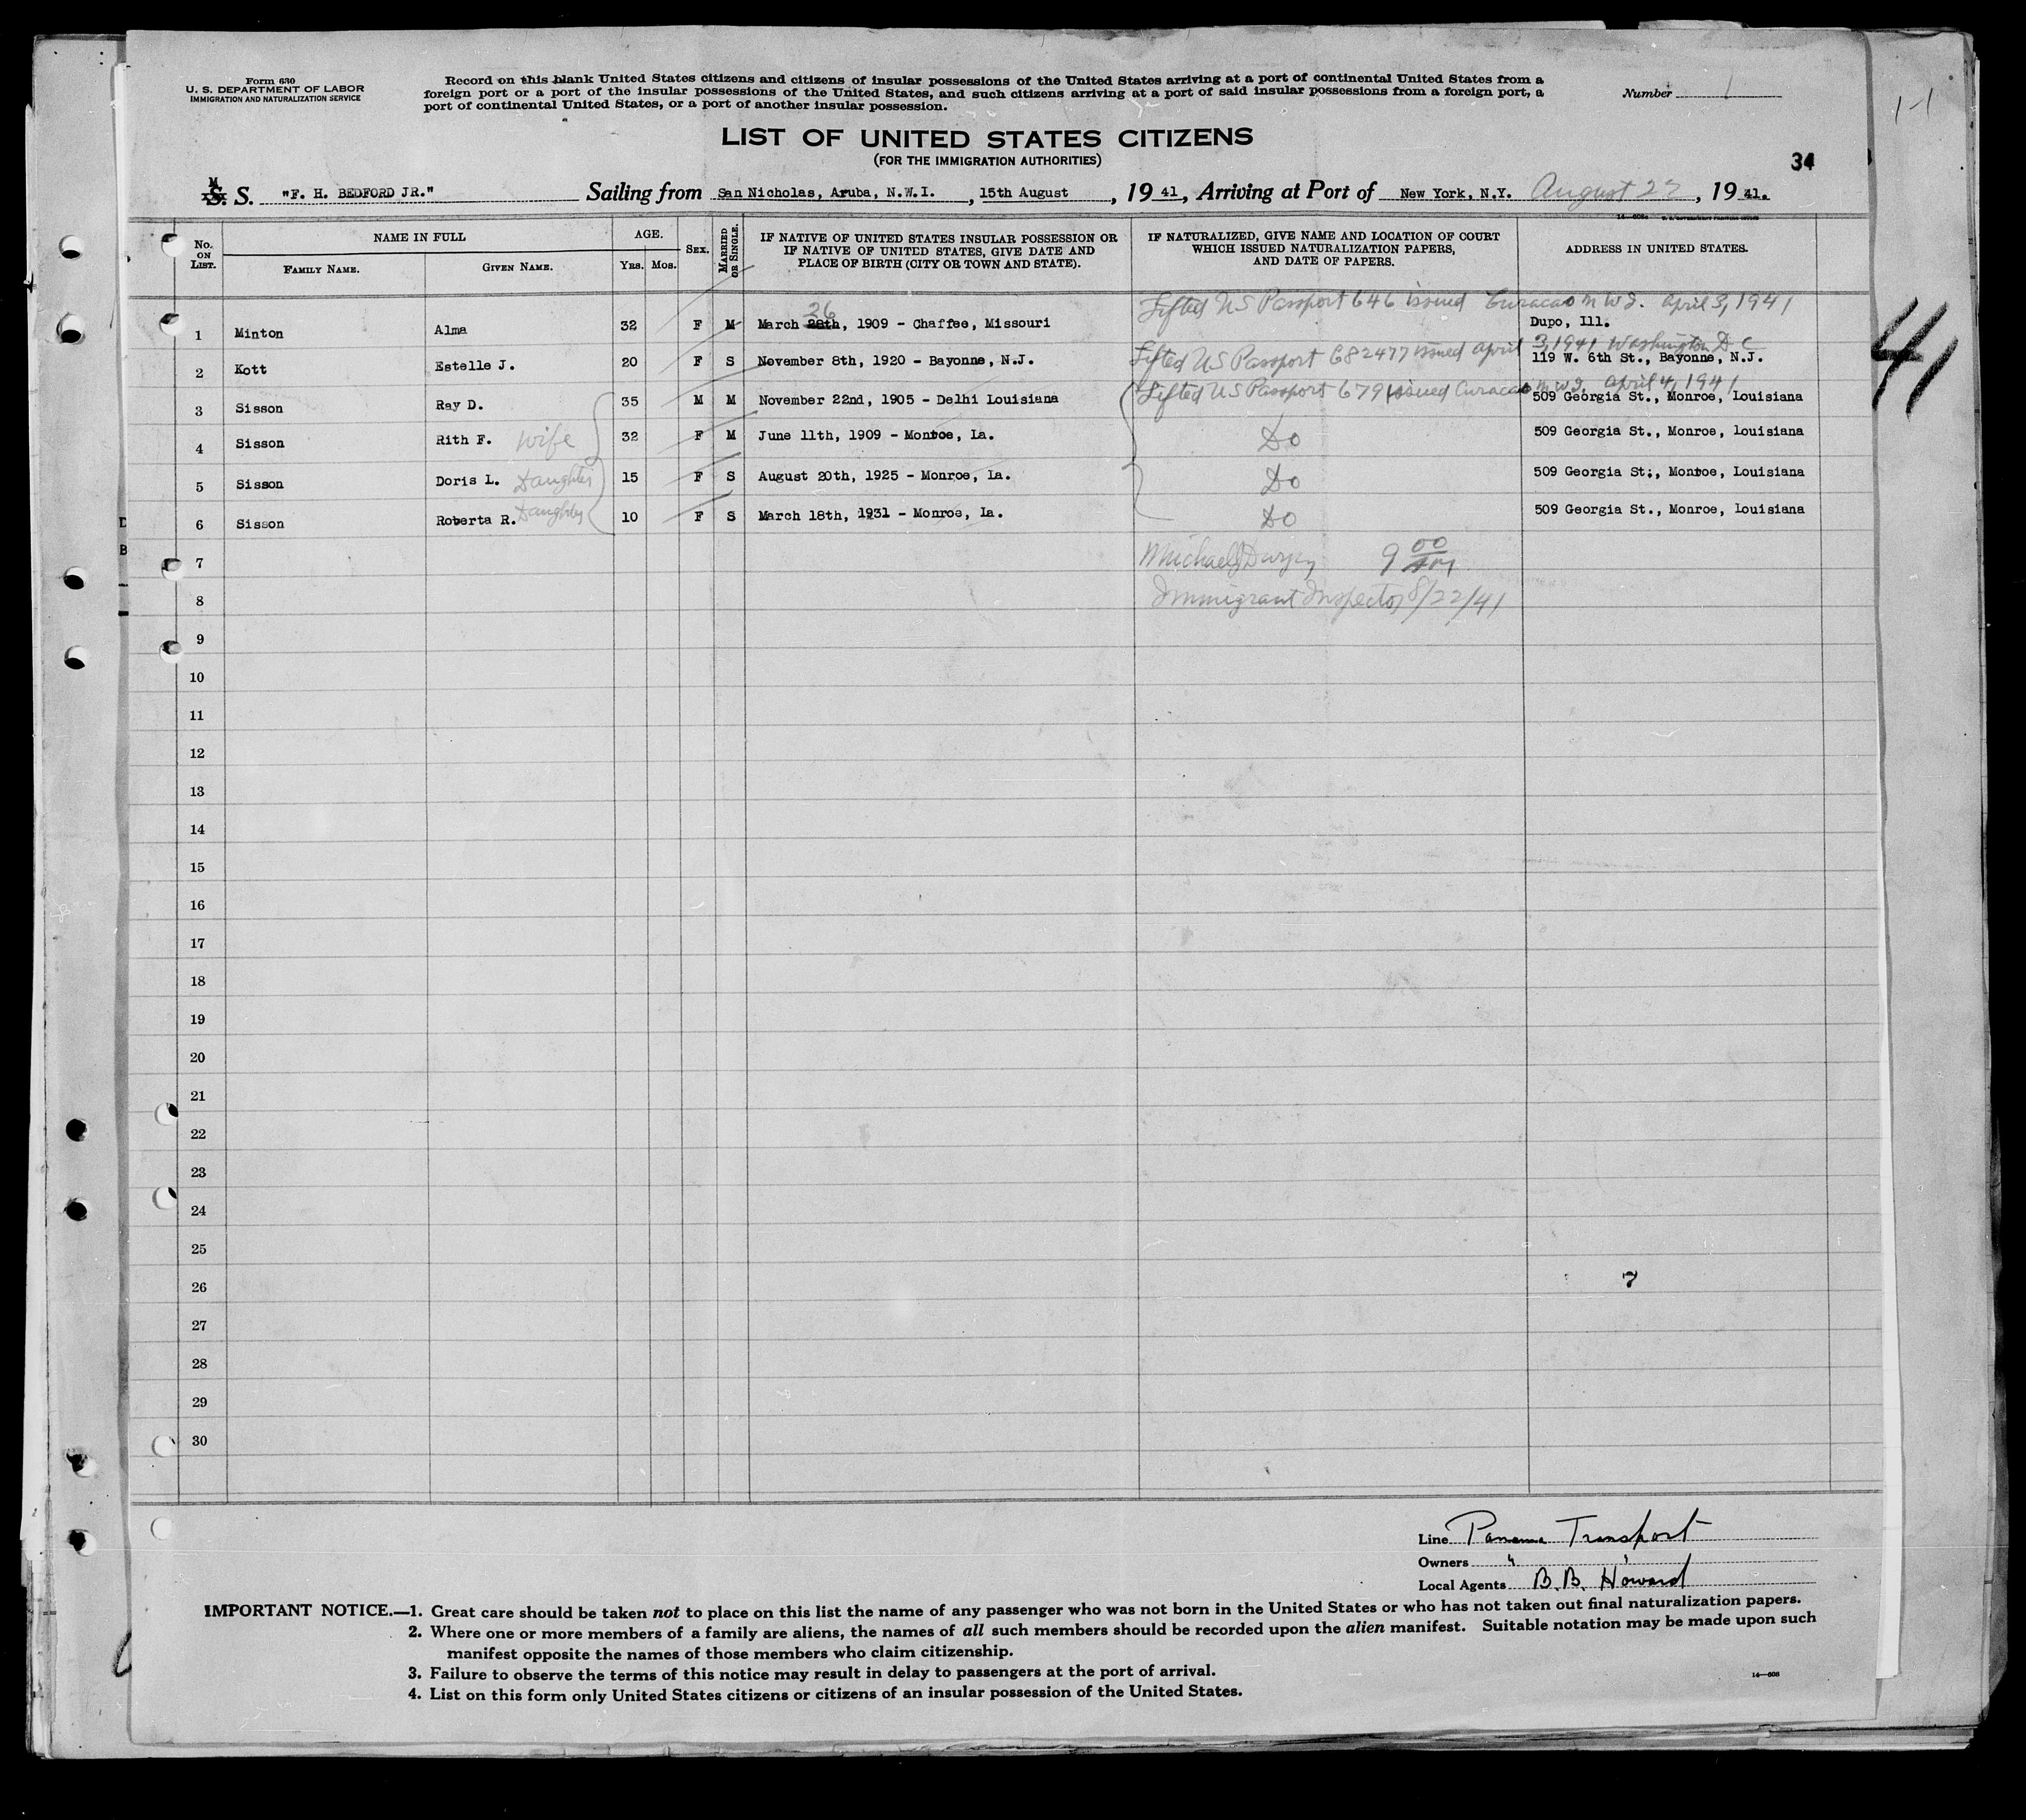 Form 630
U. S. DEPARTMENT OF LABOR
IMMIGRATION AND NATURALIZATION SERVICE
Record on this blank United States citizens and citizens of insular possessions of the United States arriving at a port of continental United States from a
foreign port or a port of the insular possessions of the United States, and such citizens arriving at a port of said insular possessions from a foreign port, a
port of continental United States, or a port of another insular possession.
Number 1
1-1
LIST OF UNITED STATES CITIZENS
(FOR THE IMMIGRATION AUTHORITIES)
34
M
S. S. "F. H. BEDFORD JR." Sailing from San Nicholas, Aruba, N.W.I., 15th August, 19 41, Arriving at Port of New York, N.Y. August 22, 19 41.
No. ON LIST.
NAME IN FULL
FAMILY NAME. GIVEN NAME.
AGE.
YRS. MOS.
SEX.
MARRIED OR SINGLE.
IF NATIVE OF UNITED STATES INSULAR POSSESSION OR
IF NATIVE OF UNITED STATES, GIVE DATE AND
PLACE OF BIRTH (CITY OR TOWN AND STATE).
IF NATURALIZED, GIVE NAME AND LOCATION OF COURT
WHICH ISSUED NATURALIZATION PAPERS,
AND DATE OF PAPERS.
ADDRESS IN UNITED STATES.
Lifted US Passport 646 issued Curacao N W I. April 3, 1941
26
1 Minton Alma 32 F M March 28th, 1909 - Chaffee, Missouri Dupo, Ill.
Lifted US Passport 682477 issued April 3, 1941 Washington D C
2 Kott Estelle J. 20 F S November 8th, 1920 - Bayonne, N.J. 119 W. 6th St., Bayonne, N.J.
Lifted US Passport 679 issued Curacao N W I. April 4, 1941
3 Sisson Ray D. 35 M M November 22nd, 1905 - Delhi Louisiana 509 Georgia St., Monroe, Louisiana
4 Sisson Rith F. wife 32 F M June 11th, 1909 - Monroe, La. Do 509 Georgia St., Monroe, Louisiana
5 Sisson Doris L. Daughter 15 F S August 20th, 1925 - Monroe, La. Do 509 Georgia St., Monroe, Louisiana
6 Sisson Roberta R. Daughter 10 F S March 18th, 1931 - Monroe, La. Do 509 Georgia St., Monroe, Louisiana
7 Michael 9 00 AM
8 Immigrant Inspector 8/22/41
9
10
11
12
13
14
15
16
17
18
19
20
21
22
23
24
25
26 7
27
28
29
30
41
Line Panama Transport
Owners " "
Local Agents B.B. Howard
IMPORTANT NOTICE.—1. Great care should be taken not to place on this list the name of any passenger who was not born in the United States or who has not taken out final naturalization papers.
2. Where one or more members of a family are aliens, the names of all such members should be recorded upon the alien manifest. Suitable notation may be made upon such
manifest opposite the names of those members who claim citizenship.
3. Failure to observe the terms of this notice may result in delay to passengers at the port of arrival.
4. List on this form only United States citizens or citizens of an insular possession of the United States.
14—608